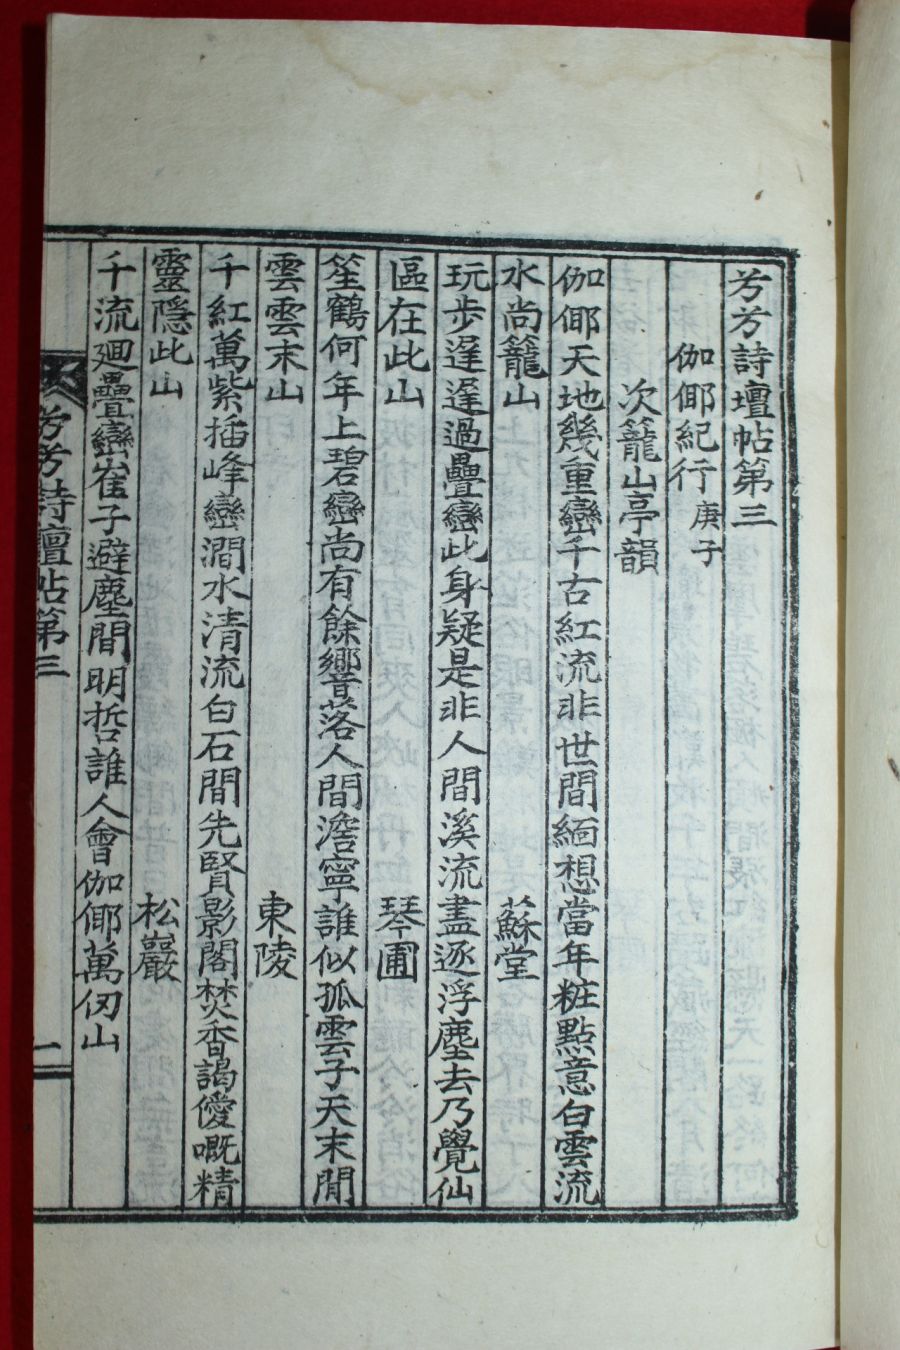 芳芳詩壇帖第三
伽倻紀行 庚子
次籠山亭韻
伽倻天地幾重巒千古紅流非世間緬想當年粧點意白雲流
水尚籠山 蘇堂
玩步遅遅過疊巒此身疑是非人間溪流盡逐浮塵去乃覺仙
區在此山 琴圃
笙鶴何年上碧巒尚有餘響落人間澹寧誰似孤雲子天末閒
雲雲末山 東陵
千紅萬紫揷峰巒澗水清流白石間先賢影閣焚香謁僾嘅精
靈隱此山 松巖
千流廻疊巒崔子避塵間明哲誰人會伽倻萬仞山
芳芳詩壇帖第三 一